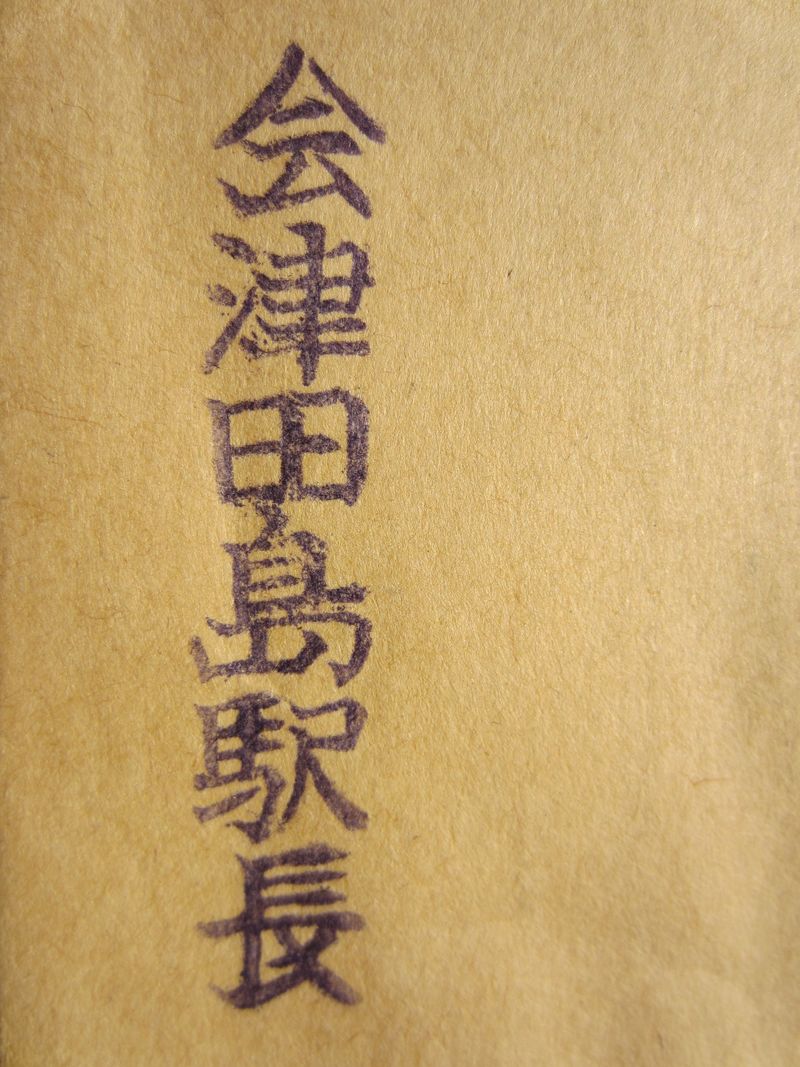 会津田島駅長